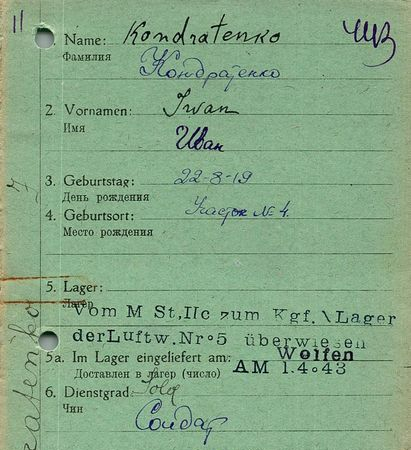 11
Name: Kondratenko
Фамилия
Кондратенко
2. Vornamen: Iwan
Имя
Иван
3. Geburtstag: 22-8-19
День рождения
4. Geburtsort: Участок № 4.
Место рождения
5. Lager:
Лагерь
Vom M St,IIc zum Kgf.\Lager
der Luftw. Nr 5 überwiesen
Wolfen
5a. Im Lager eingeliefert am: AM 1.4.43
Доставлен в лагер (число)
6. Dienstgrad: Sold
Чин
Солдат